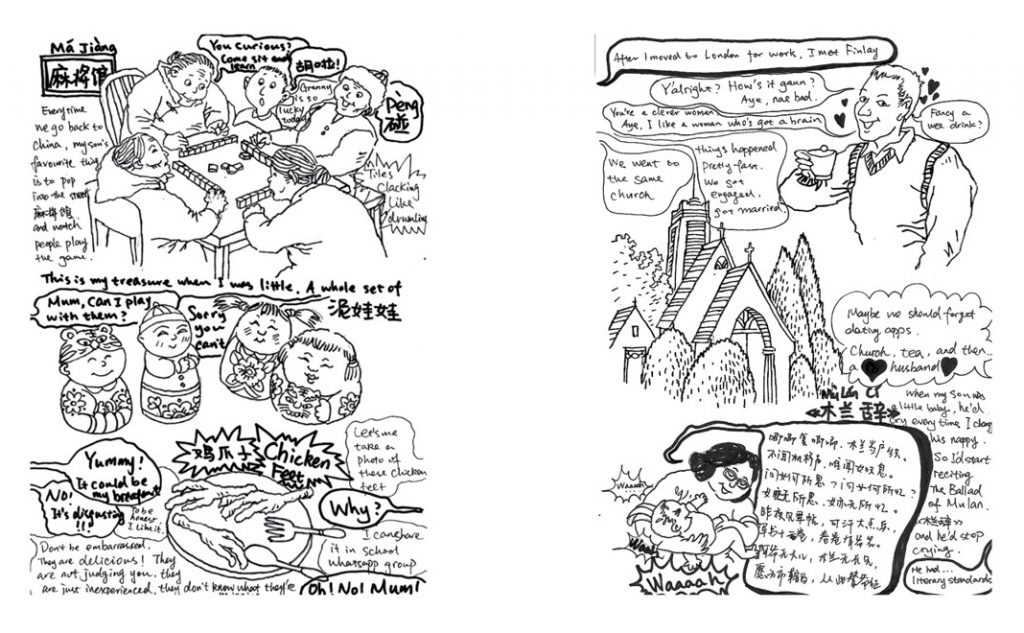 Má Jiàng
麻将馆
You curious?
Come sit and
learn
胡啦!
Granny
is so
lucky
today
Pèng
碰
Everytime
we go back to
China, my son's
favourite thing
is to pop
into the street
麻将馆
and watch
people play
the game.
Tiles
Clacking
Like
drumming
This is my treasure when I was little. A whole set of
泥娃娃
Mum, Can I play
with them?
Sorry
you
can't
Yummy!
It could be
my breakfast
No!
It's disgusting
!!!
To be
honest
I like it.
鸡爪子
Chicken
Feet
Let's me
take a
photo of
these chicken
feet
Why?
I can share
it in school
whatsapp group
Oh! No! Mum!
Don't be embarrassed.
They are delicious! They
are not judging you, they
are just inexperienced, they don't know what they're
After I moved to London for work, I met Finlay
Y'alright? How's it gaun?
Aye, nae bad.
You're a clever woman
Aye, I like a woman who's got a brain
Fancy a
wee drink?
We went to
the same
church
things happened
pretty fast.
We got
engaged,
got married
Maybe we should forget
dating apps.
Church, tea, and then..
a husband
Mù Lán Cí
《木兰辞》
When my son was
a little baby, he'd
cry every time I change
his nappy.
So I'd start
reciting
the Ballad
of Mulan.
《木兰辞》
and he'd stop
crying.
He had...
literary standards
唧唧复唧唧，木兰当户织。
不闻机杼声，唯闻女叹息。
问女何所思？问女何所忆？
女亦无所思，女亦无所忆。
昨夜见军帖，可汗大点兵，
军书十二卷，卷卷有爷名。
阿爷无大儿，木兰无长兄，
愿为市鞍马，从此替爷征
Waaah
Waah
Waaaah